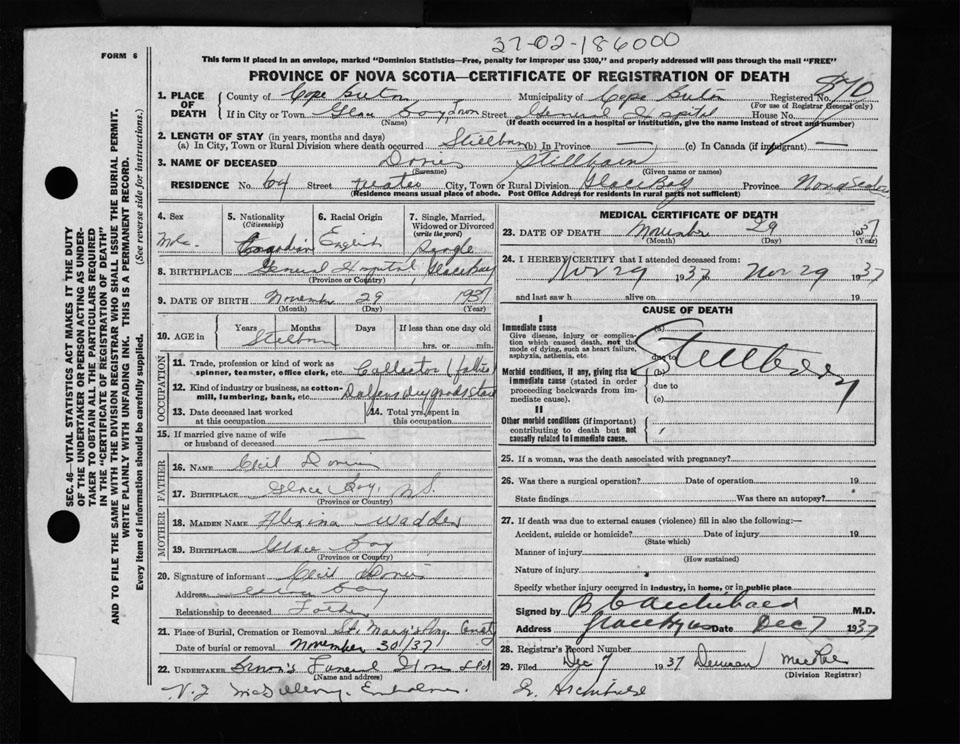 37-02-186000
FORM 6
This form if placed in an envelope, marked "Dominion Statistics—Free, penalty for improper use $300," and properly addressed will pass through the mail "FREE"
PROVINCE OF NOVA SCOTIA—CERTIFICATE OF REGISTRATION OF DEATH
870
1. PLACE OF DEATH
County of Cape Breton Municipality of Cape Breton Registered No.
(For use of Registrar General only)
If in City or Town Glace Bay, Town Street General Hospital House No.
(Name) (If death occurred in a hospital or institution, give the name instead of street and number)
2. LENGTH OF STAY (in years, months and days)
(a) In City, Town or Rural Division where death occurred Stillborn (b) In Province — (c) In Canada (if immigrant) —
3. NAME OF DECEASED Stillborn
(Surname) (Given name or names)
RESIDENCE No. 64 Street Water City, Town or Rural Division Glace Bay Province Nova Scotia
(Residence means usual place of abode. Post Office Address for residents in rural parts not sufficient)
4. Sex Male
5. Nationality (Citizenship) Canadian
6. Racial Origin English
7. Single, Married, Widowed or Divorced (write the word) Single
8. BIRTHPLACE General Hospital, Glace Bay
(Province or Country)
9. DATE OF BIRTH November 29 1937
(Month) (Day) (Year)
10. AGE in Years Months Days If less than one day old
Stillborn hrs. or min.
OCCUPATION
11. Trade, profession or kind of work as spinner, teamster, office clerk, etc. Collector (father)
12. Kind of industry or business, as cotton-mill, lumbering, bank, etc. dry goods store
13. Date deceased last worked at this occupation
14. Total yrs. spent in this occupation
15. If married give name of wife or husband of deceased —
FATHER
16. NAME Cecil
17. BIRTHPLACE Glace Bay, N.S.
(Province or Country)
MOTHER
18. MAIDEN NAME Alexina Wadden
19. BIRTHPLACE Glace Bay
(Province or Country)
20. Signature of informant Cecil
Address Glace Bay
Relationship to deceased Father
21. Place of Burial, Cremation or Removal St. Mary's
Date of burial or removal November 30/37
22. UNDERTAKER Funeral Home Ltd
(Name and address)
V. J. McGillivray, Embalmer.
MEDICAL CERTIFICATE OF DEATH
23. DATE OF DEATH November 29 1937
(Month) (Day) (Year)
24. I HEREBY CERTIFY that I attended deceased from:
Nov 29 1937 to Nov 29 1937
and last saw h alive on 19
CAUSE OF DEATH
I
Immediate cause (a)
Give disease, injury or complication which caused death, not the mode of dying, such as heart failure, asphyxia, asthenia, etc. due to
Stillborn
Morbid conditions, if any, giving rise to immediate cause (stated in order proceeding backwards from immediate cause). (b)
due to
(c)
II
Other morbid conditions (if important) contributing to death but not causally related to immediate cause.
25. If a woman, was the death associated with pregnancy?
26. Was there a surgical operation? Date of operation 19
State findings Was there an autopsy?
27. If death was due to external causes (violence) fill in also the following:—
Accident, suicide or homicide? Date of injury 19
(State which)
Manner of injury
(How sustained)
Nature of injury
Specify whether injury occurred in industry, in home, or in public place
Signed by B C Archibald M.D.
Address Glace Bay Date Dec 7 1937
28. Registrar's Record Number
29. Filed Dec 7 1937
(Division Registrar)
Archibald
SEC. 46—VITAL STATISTICS ACT MAKES IT THE DUTY OF THE UNDERTAKER OR PERSON ACTING AS UNDERTAKER TO OBTAIN ALL THE PARTICULARS REQUIRED IN THE "CERTIFICATE OF REGISTRATION OF DEATH" AND TO FILE THE SAME WITH THE DIVISION REGISTRAR WHO SHALL ISSUE THE BURIAL PERMIT.
WRITE PLAINLY WITH UNFADING INK. THIS IS A PERMANENT RECORD.
Every item of information should be carefully supplied. (See reverse side for instructions.)